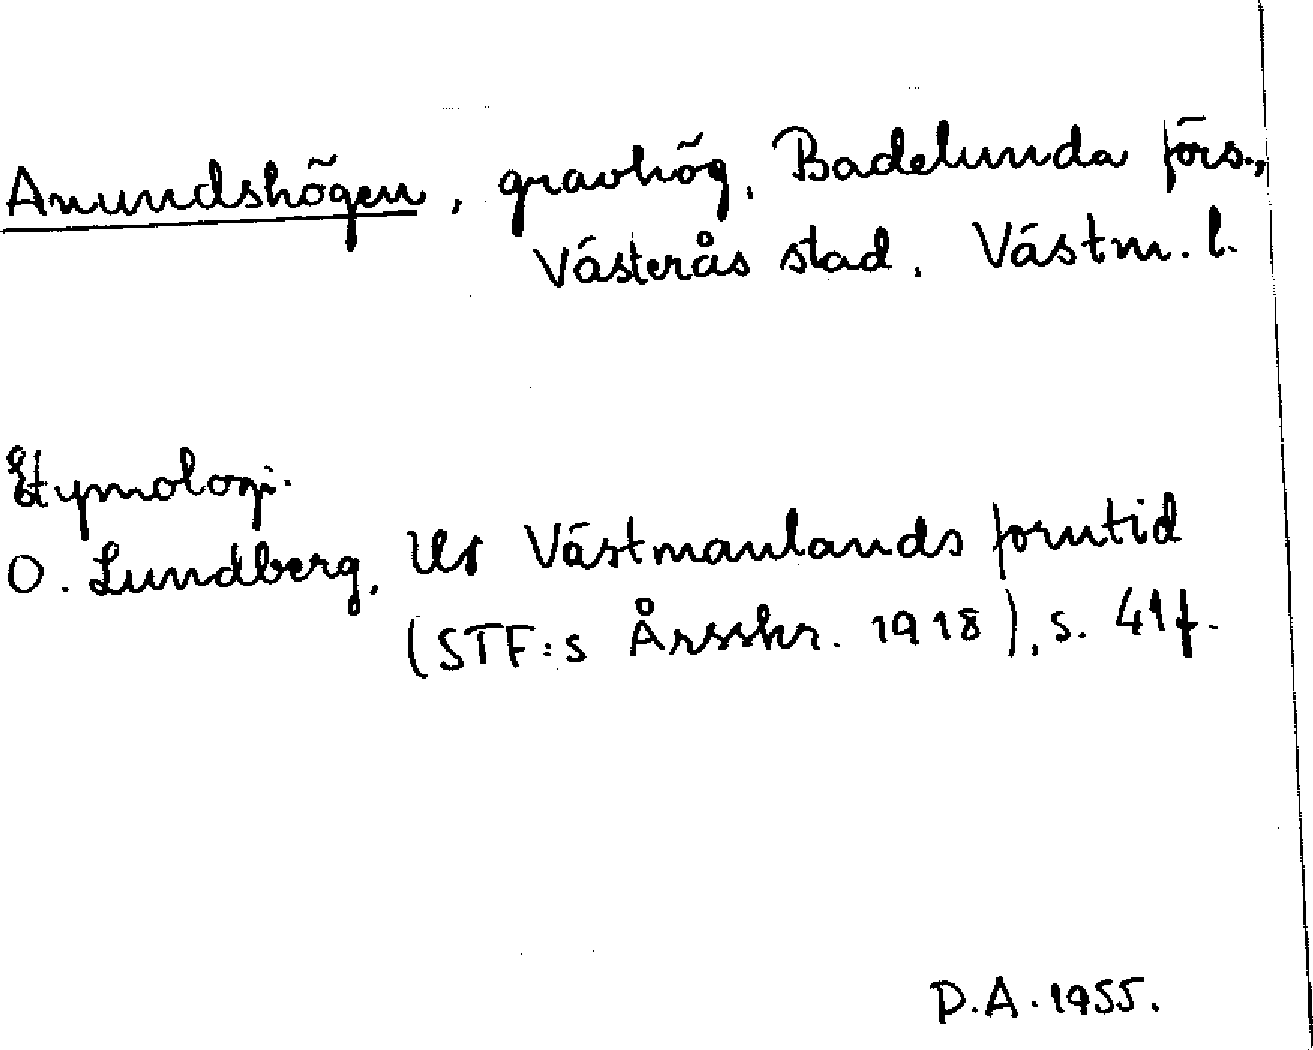 Anundshögen, gravhög, Badelunda förs.,
Västerås stad, Västm. l.
Etymologi.
O. Lundberg, Ur Västmanlands forntid
(STF:s Årsskr. 1918), s. 41 f.
D.A. 1955.